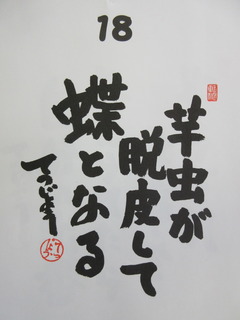 18
芋虫が
脱皮して
蝶となる